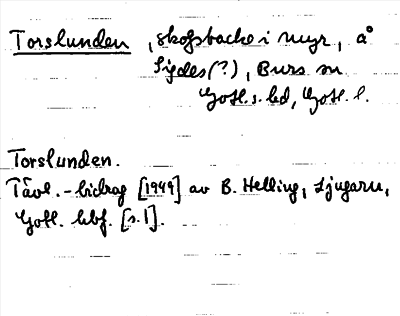 Torslunden, skogsbacke i myr, å
Sigdes(?), Burs sn
Gotl. s. hd, Gotl. l.
Torslunden.
Tävl.-bidrag [1949] av B. Helling, Ljugarn,
Gotl. hbf. [s. 1].